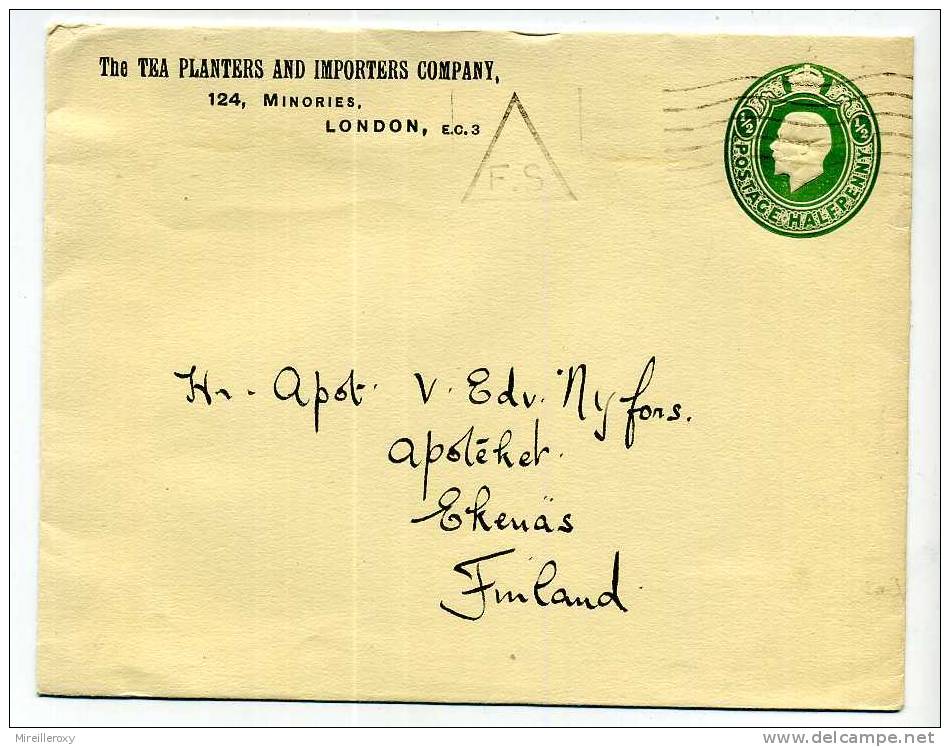 The TEA PLANTERS AND IMPORTERS COMPANY,
124, MINORIES,
LONDON, E.C.3
F.S
½ ½
POSTAGE HALFPENNY
Hr. Apot. V. Edv. Nyfors.
Apotéket.
Ekenäs
Finland
Mireilleroxy
www.delcampe.net